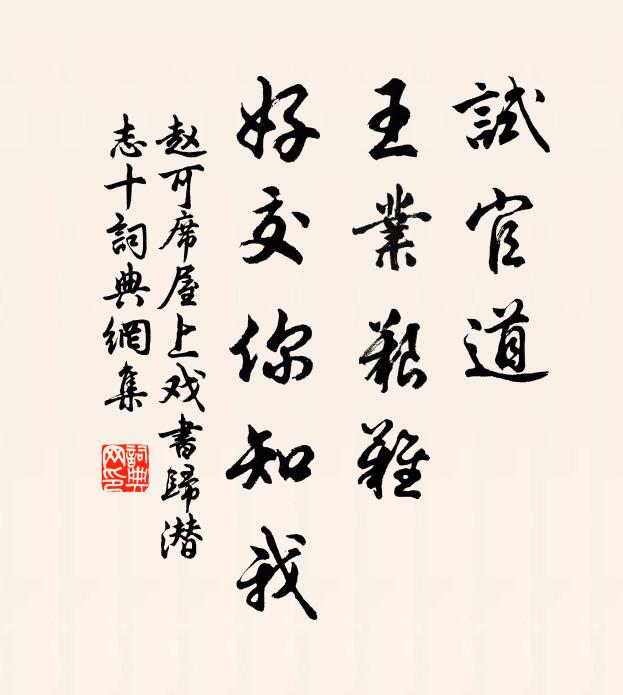 試官道
王業艱難
好交你知我
赵可席屋上戏書歸潜
志十詞典網集
詞典網印